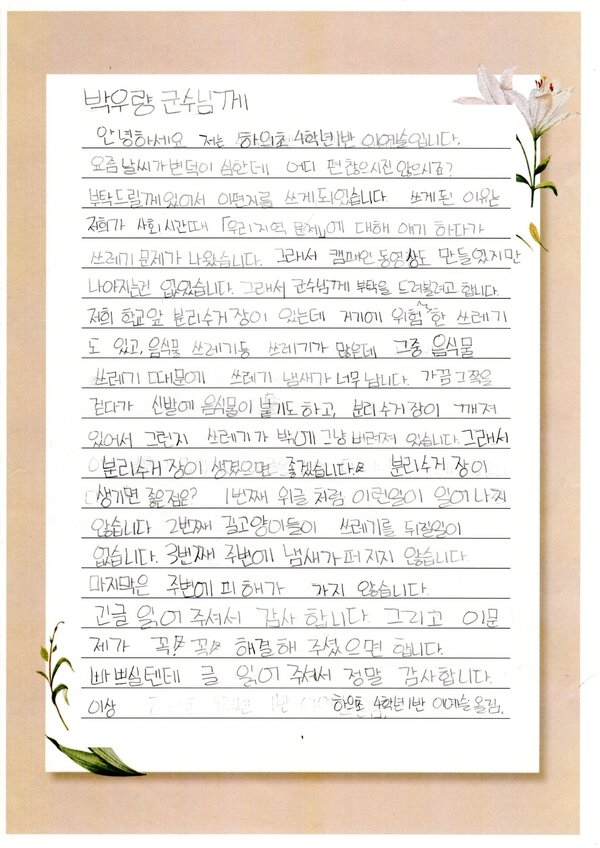 박우량 군수님께
안녕하세요 저는 하의초 4학년1반 이예슬입니다.
요즘 날씨가 변덕이 심한데 어디 편찮으시진 않으시죠?
부탁드릴께 있어서 이편지를 쓰게 되었습니다. 쓰게 된 이유는
저희가 사회시간때 「우리지역 문제」에 대해 얘기 하다가
쓰레기 문제가 나왔습니다. 그래서 캠페인 동영상도 만들었지만
나아지는건 없었습니다. 그래서 군수님께 부탁을 드려볼려고 합니다.
저희 학교앞 분리수거장이 있는데 거기에 위험한 쓰레기
도 있고, 음식물 쓰레기등 쓰레기가 많은데 그중 음식물
쓰레기 때문에 쓰레기 냄새가 너무 납니다. 가끔 그쪽을
걷다가 신발에 음식물이 묻기도 하고, 분리수거장이 깨져
있어서 그런지 쓰레기가 밖에 그냥 버려져 있습니다. 그래서
분리수거장이 생겼으면 좋겠습니다. 분리수거장이
생기면 좋은점은? 1번째 위글 처럼 이런일이 일어나지
않습니다 2번째 길고양이들이 쓰레기를 뒤질일이
없습니다. 3번째 주변에 냄새가 퍼지지 않습니다.
마지막은 주변에 피해가 가지 않습니다.
긴글 읽어 주셔서 감사합니다. 그리고 이문
제가 꼭! 꼭! 해결해 주셨으면 합니다.
바쁘실텐데 글 읽어 주셔서 정말 감사합니다.
이상 하의초 4학년1반 이예슬올림.